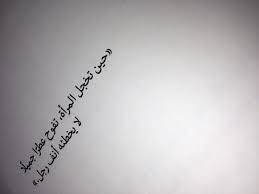 «حين تخجل المرأة، تفوح عطرا جميلا
لا يخطئه أنف رجل.»